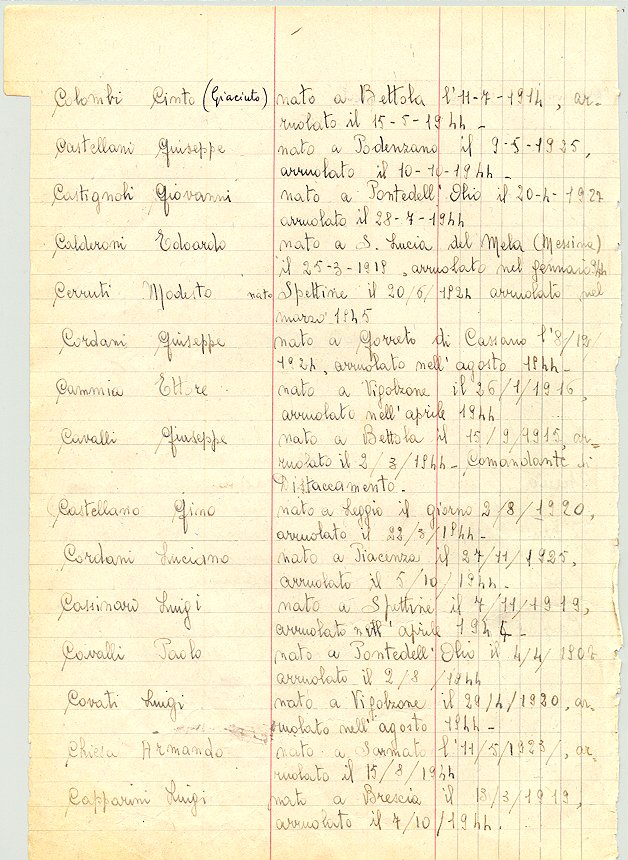 Colombi Cinto (Giacinto) nato a Bettola l'11-7-1914, ar-
ruolato il 15-5-1944 -
Castellani Giuseppe nato a Podenzano il 9-5-1925,
arruolato il 10-10-1944 -
Castignoli Giovanni nato a Pontedell'Olio il 20-4-1927
arruolato il 28-7-1944
Calderoni Edoardo nato a S. Lucia del Mela (Messina)
il 25-3-1918, arruolato nel gennaio 944
Cerruti Modesto nato Spettine il 20/6/1924 arruolato nel
marzo 1945
Cordani Giuseppe nato a Gorreto di Cassano l'8/12/
1924, arruolato nell'agosto 1944 -
Cammia Ettore nato a Vigolzone il 26/1/1916,
arruolato nell'aprile 1944
Cavalli Giuseppe nato a Bettola il 15/9/1915, ar-
ruolato il 2/3/1944 - Comandante di
Distaccamento -
Castellano Gino nato a Leggio il giorno 2/8/1920,
arruolato il 22/3/1944 -
Cordani Luciano nato a Piacenza il 27/11/1925,
arruolato il 5/10/1944 -
Cassinari Luigi nato a Spettine il 7/11/1919,
arruolato nell'aprile 1944 -
Cavalli Paolo nato a Pontedell'Olio il 4/4/1907
arruolato il 2/8/1944
Covati Luigi nato a Vigolzone il 29/4/1920, ar-
ruolato nell'agosto 1944 -
Chiesa Armando nato a Sarmato l'11/5/1923/, ar-
ruolato il 15/8/1944
Capparini Luigi nato a Brescia il 13/3/1919,
arruolato il 7/10/1944.